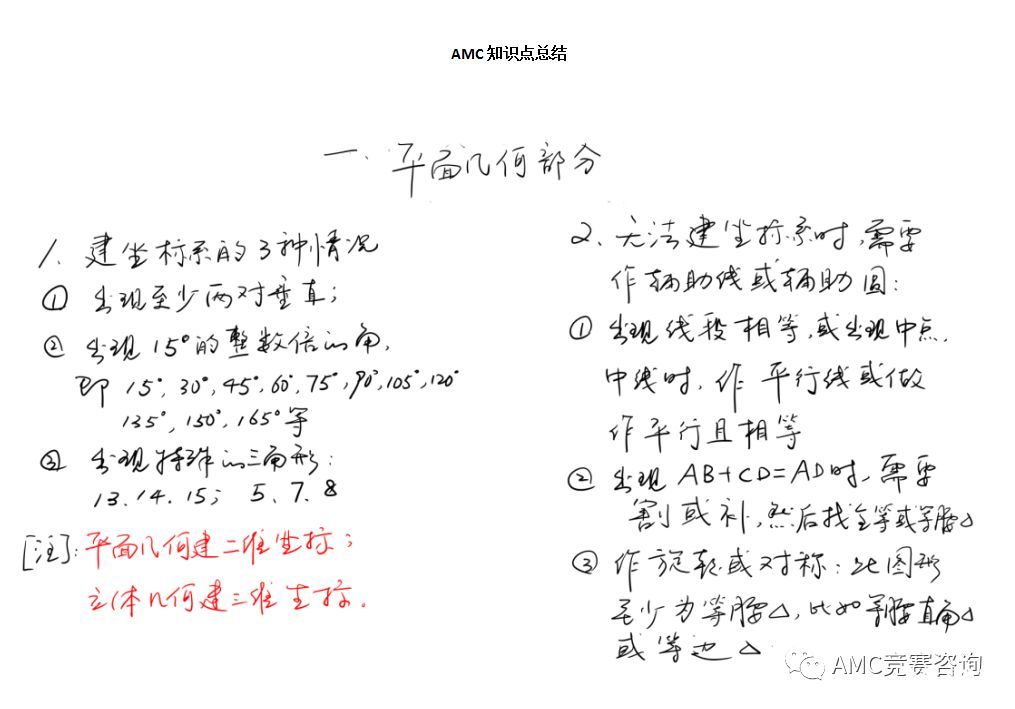 AMC 知识点总结
一、平面几何部分
1、建坐标系的3种情况
① 出现至少两对垂直；
② 出现15°的整数倍的角，
即 15°,30°,45°,60°,75°,90°,105°,120°
135°,150°,165°等
③ 出现特殊的三角形：
13.14.15； 5、7、8
[注]：平面几何建二维坐标；
立体几何建三维坐标．
2、无法建坐标系时，需要
作辅助线或辅助圆：
① 出现线段相等，或出现中点，
中线时，作平行线或做
作平行且相等
② 出现AB+CD=AD时，需要
割或补，然后找全等或等腰△
③ 作旋转或对称：此图形
至少为等腰△，比如等腰直角△
或等边△
AMC竞赛咨询